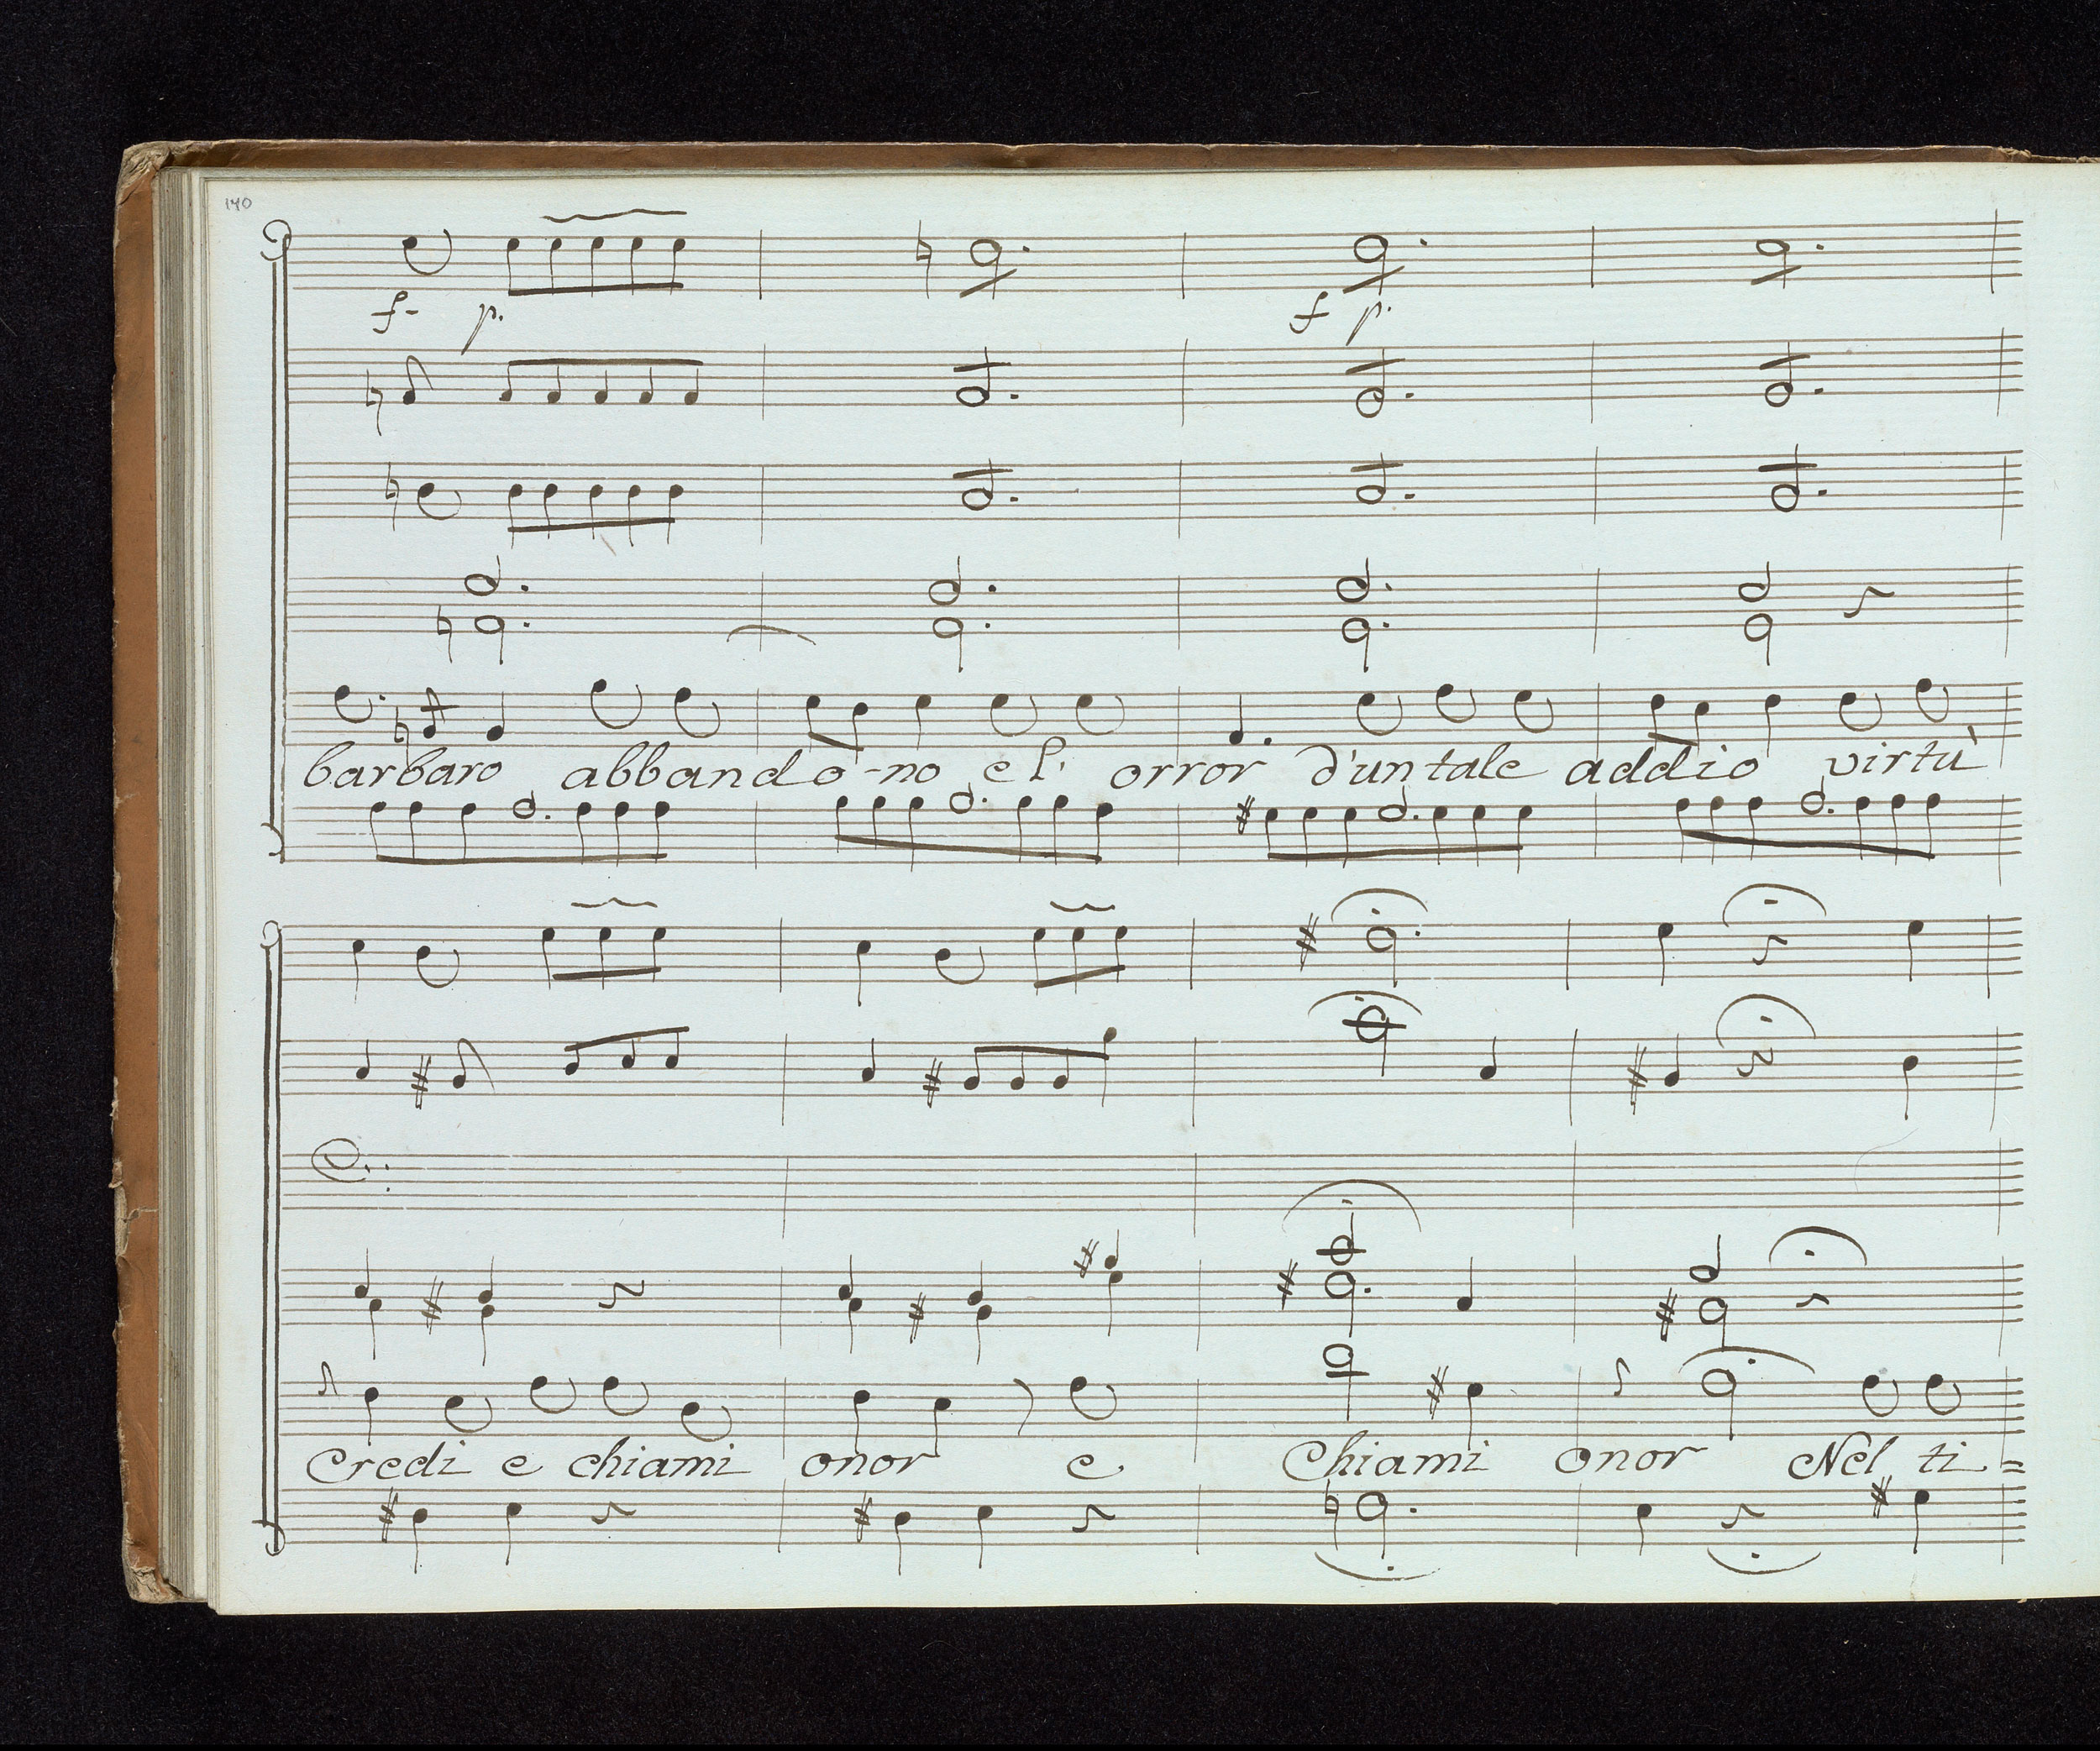 140
f. p. f p.
barbaro abbando-no e l' orror d'un tale addio virtù
Credi e chiami onor e Chiami onor Nel ti=